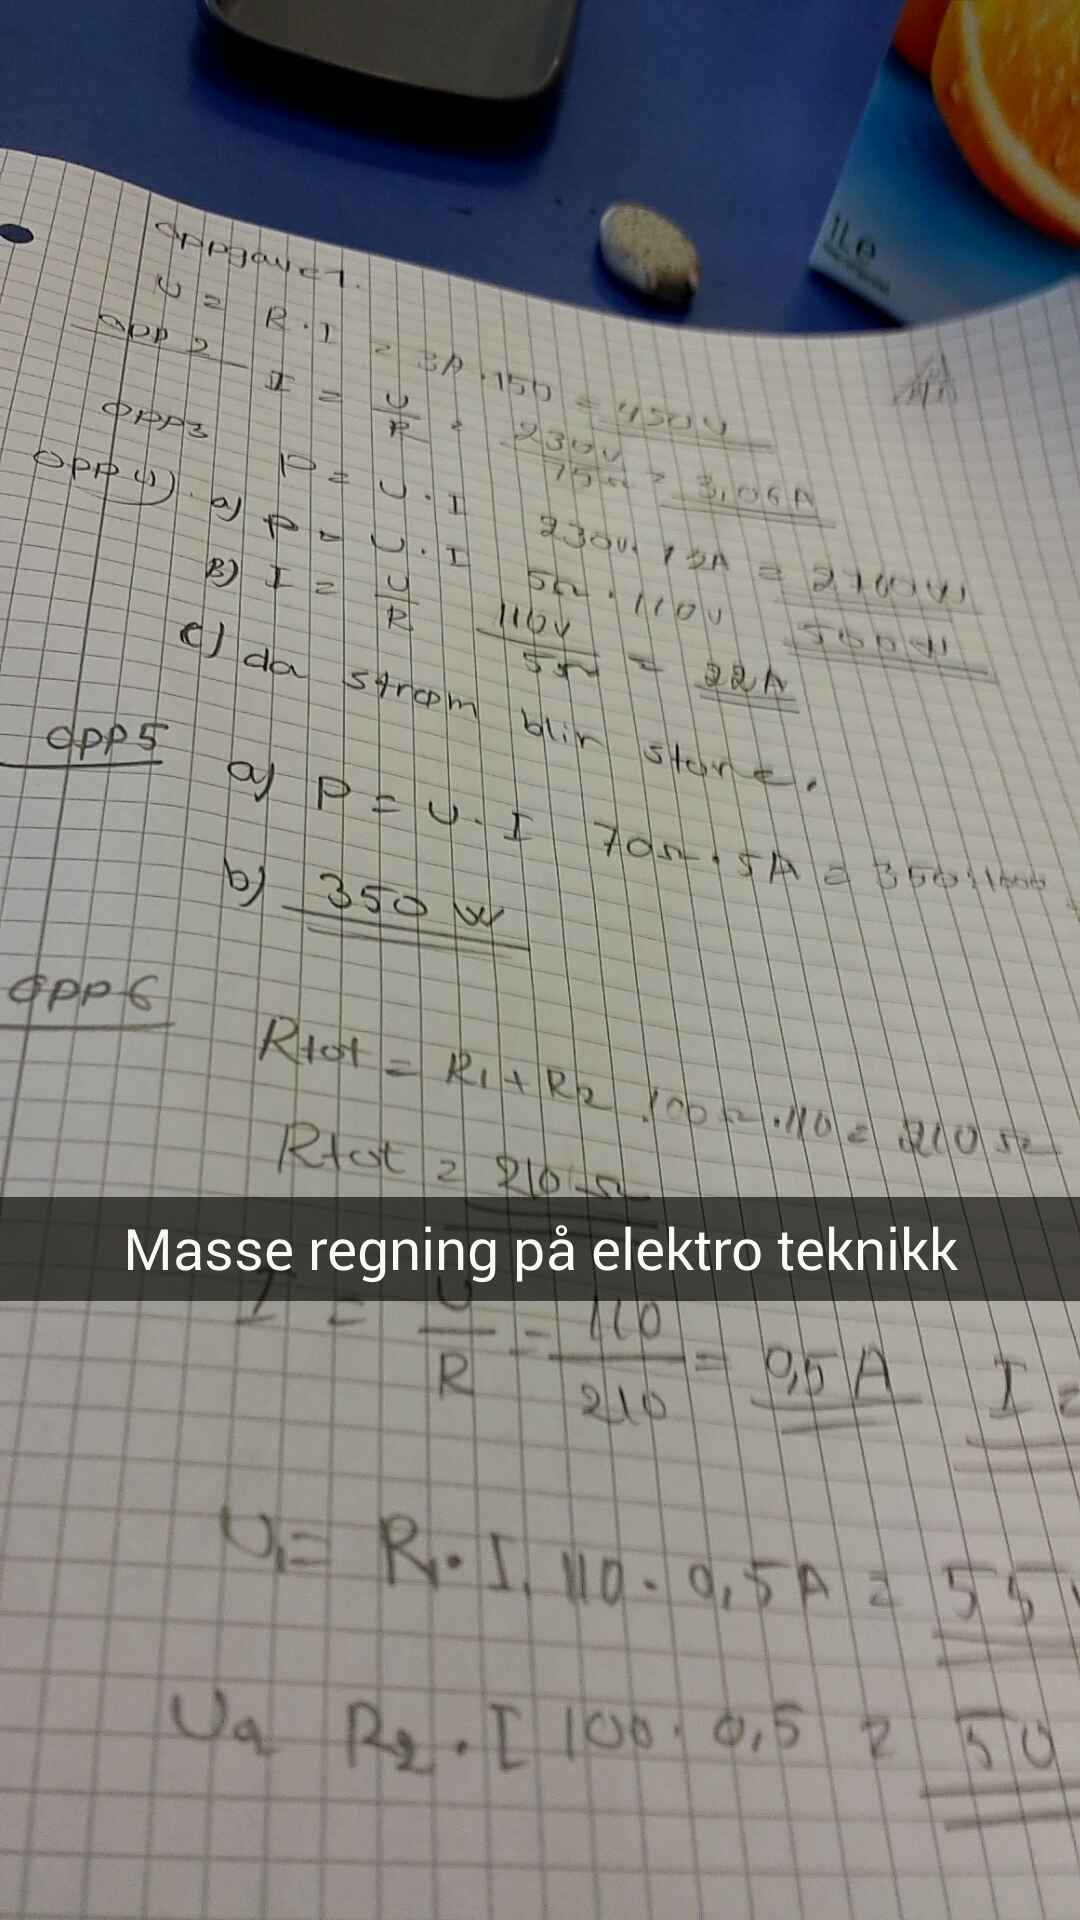 Oppgave 1.
U = R · I = 3A · 150 = 450V
Opp 2 I = U/R = 230V/75Ω = 3,06A
Opp3 P = U · I 230V · 12A =
Opp 4) a) P = U · I 5Ω · 110V
B) I = U/R 110V/5Ω = 22A
c) da strøm blir større.
Opp 5 a) P = U · I 70Ω · 5A = 350:1000
b) 350 W
Opp 6
Rtot = R1 + R2 100Ω · 110 = 210Ω
Rtot = 210Ω
Masse regning på elektro teknikk
I = U/R = 110/210 = 0,5A I =
U1 = R1 · I 110 · 0,5A = 55
U2 R2 · I 100 · 0,5 = 50